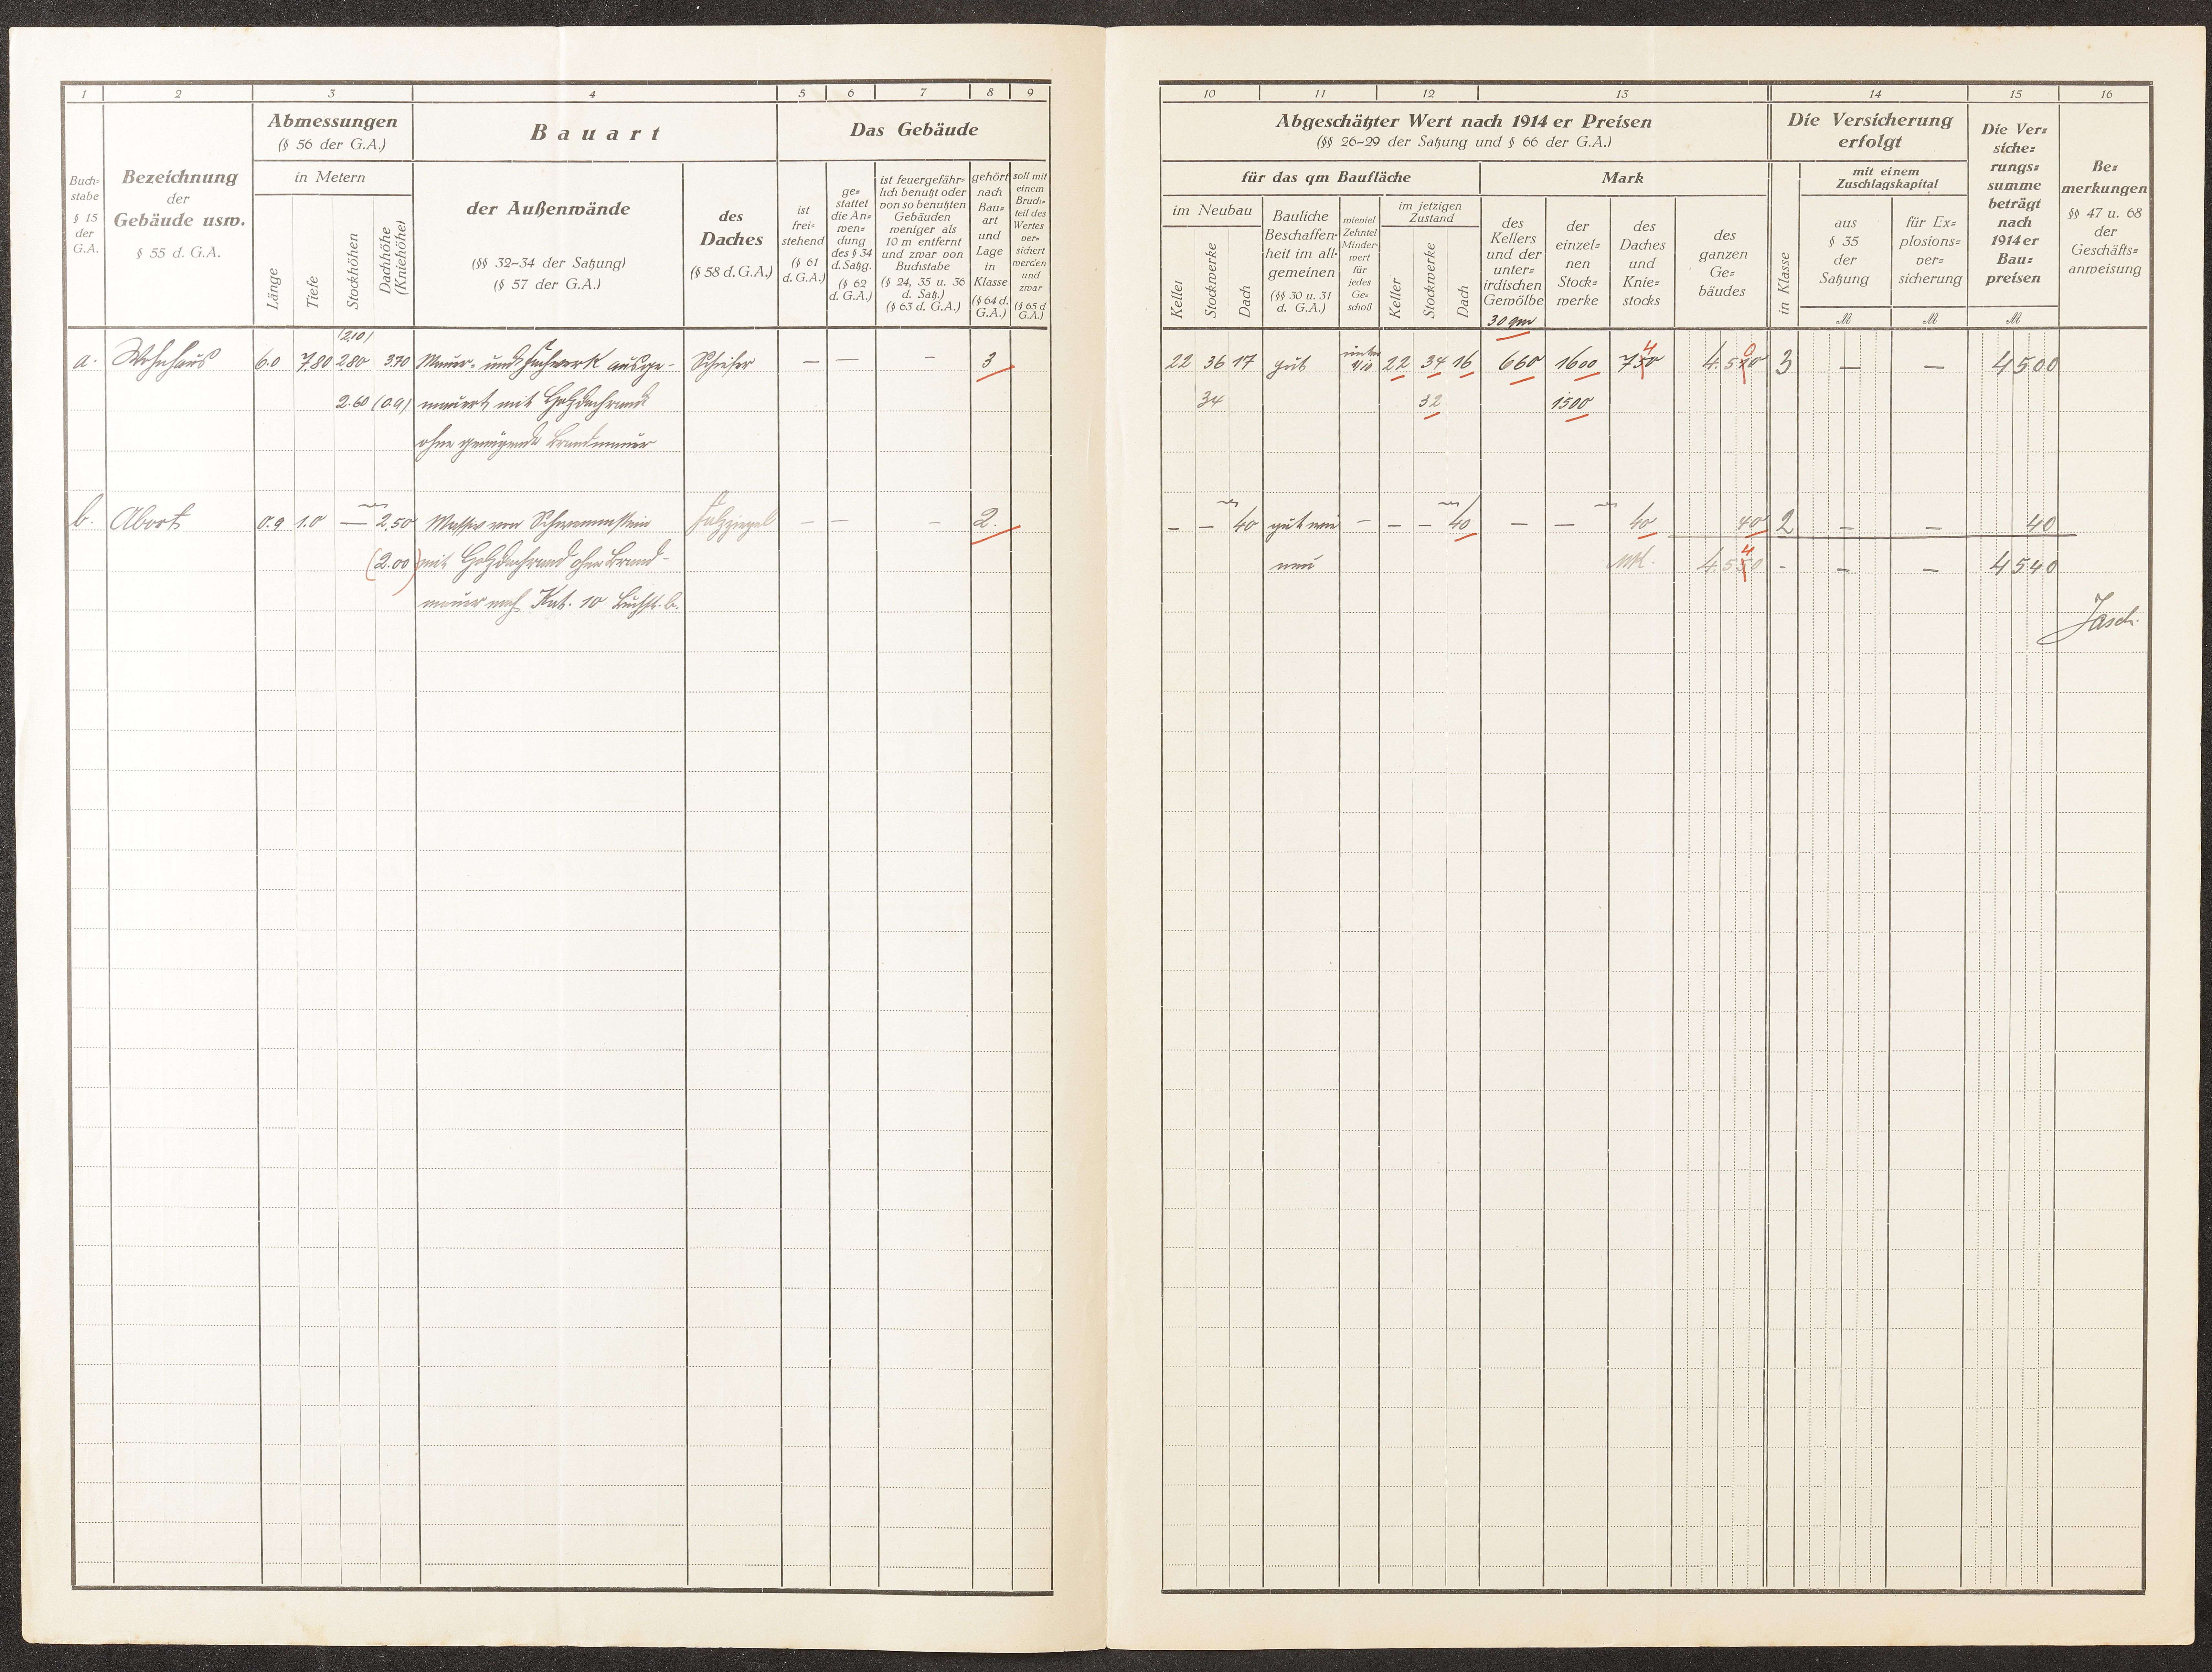 1 2 3 4 5 6 7 8 9
Buch=
stabe
§ 15
der
G.A.
Bezeichnung
der
Gebäude usw.
§ 55 d. G.A.
Abmessungen
(§ 56 der G.A.)
in Metern
Länge
Tiefe
Stockhöhen
Dachhöhe
(Kniehöhe)
Bauart
der Außenwände
(§§ 32–34 der Satzung)
(§ 57 der G.A.)
des
Daches
(§ 58 d. G.A.)
Das Gebäude
ist
frei=
stehend
(§ 61
d. G.A.)
ge=
stattet
die An=
wen=
dung
des § 34
d. Satzg.
(§ 62
d. G.A.)
ist feuergefähr=
lich benutzt oder
von so benutzten
Gebäuden
weniger als
10 m entfernt
und zwar von
Buchstabe
(§ 24, 35 u. 36
d. Satz.)
(§ 63 d. G.A.)
gehört
nach
Bau=
art
und
Lage
in
Klasse
(§ 64 d.
G.A.)
soll mit
einem
Bruch=
teil des
Wertes
ver=
sichert
werden
und
zwar
(§ 65 d
G.A.)
(2.10)
a. Wohnhaus 6.0 7.80 2.80 3.70 Mauer- und Fachwerk ausge- Schiefer — — — 3
2.60 (0.9) mauert mit Holzdachrand
ohne genügende Brandmauer
b. Abort 0.9 1.0 — 2.50 Massiv von Schwemmstein Falzziegel — — — 2.
(2.00) mit Holzdachrand ohne Brand-
mauer nach Kat. 10 Buchst. b.
10 11 12 13 14 15 16
Abgeschätzter Wert nach 1914 er Preisen
(§§ 26–29 der Satzung und § 66 der G.A.)
für das qm Baufläche
im Neubau
Keller
Stockwerke
Dach
Bauliche
Beschaffen=
heit im all=
gemeinen
(§§ 30 u. 31
d. G.A.)
wieviel
Zehntel
Minder=
wert
für
jedes
Ge=
schoß
im jetzigen
Zustand
Keller
Stockwerke
Dach
Mark
des
Kellers
und der
unter=
irdischen
Gewölbe
der
einzel=
nen
Stock=
werke
des
Daches
und
Knie=
stocks
des
ganzen
Ge=
bäudes
Die Versicherung
erfolgt
in Klasse
mit einem
Zuschlagskapital
aus
§ 35
der
Satzung
für Ex=
plosions=
ver=
sicherung
Die Ver=
siche=
rungs=
summe
beträgt
nach
1914 er
Bau=
preisen
Be=
merkungen
§§ 47 u. 68
der
Geschäfts=
anweisung
30 qm M M M
22 36 17 gut unter 1/10 22 34 16 660 1600 750 4 4.510 0 3 — — 4500
34 32 1500
— — 40 gut wie — — — 40 — — 40 40 2 — — 40
neu Mk. 4.550 4 - — — 4540
Jasch.